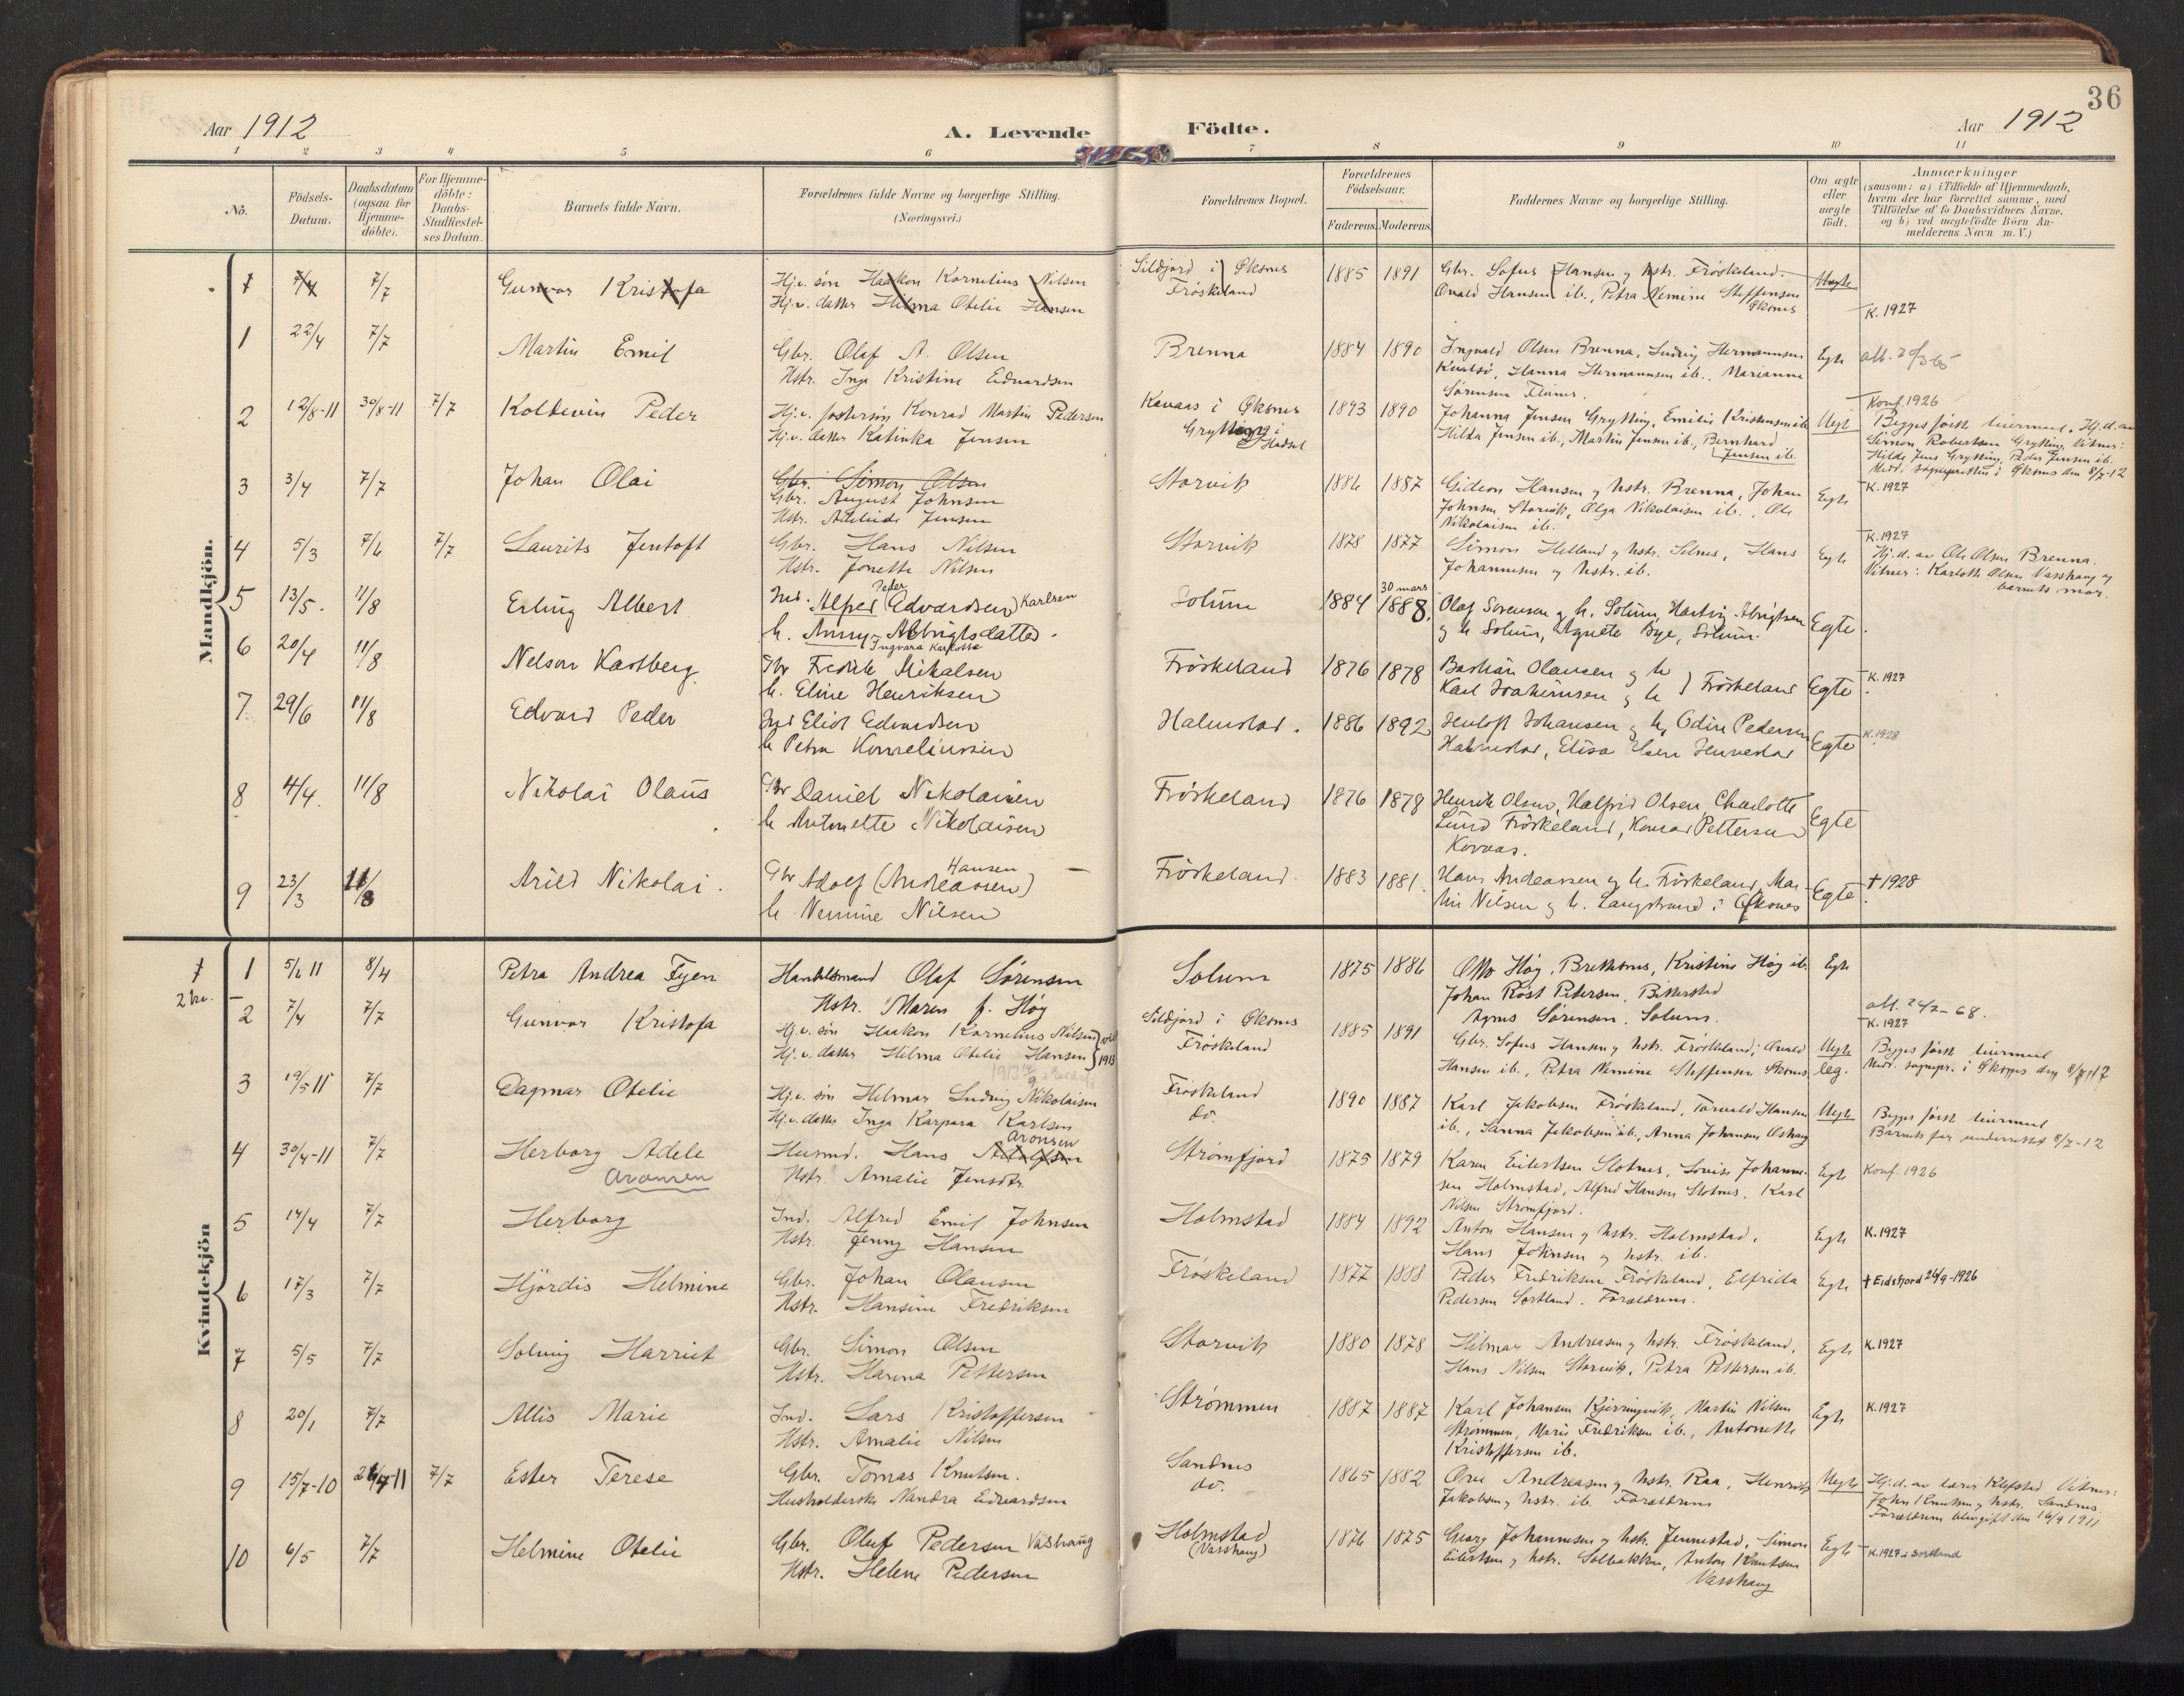 36
Aar 1912
A. Levende Födte.
Aar 1912
1 2 3 4 5 6 7 8 9 10 11
No.
Födsels-Datum.
Daabsdatum (ogsaa for Hjemme-döbte).
For Hjemme-döbte: Daabs-Stadfæstel-ses Datum.
Barnets fulde Navn.
Forældrenes fulde Navne og borgerlige Stilling.
(Næringsvei.)
Forældrenes Bopæl.
Forældrenes Födselsaar.
Faderens. Moderens.
Faddernes Navne og borgerlige Stilling.
Om ægte eller uægte födt.
Anmærkninger
(saasom: a) i Tilfælde af Hjemmedaab,
hvem der har forrettet samme, med
Tilföielse af to Daabsvidners Navne,
og b) ved uægtefödte Börn An-
melderens Navn m. V.)
Mandkjön.
1 7/4 7/7 Gunvor Kristofa
Hj.v. søn Haakon Kornelius Nilsen
Hj.v. datter Hilma Otelie Hansen
Sildfjord i Øksnes
Frøskeland
1885 1891
Gbr. Sofus Hansen og hstr. Frøskeland.
Hansen ib., Petra Nemine Steffensen
Øksnes
Uegte
K. 1927
1 22/4 7/7 Martin Emil
Gbr. Olaf A. Olsen
Hstr. Inga Kristine Edvardsen
Brenna 1884 1890
Ingvald Olsen Brenna, Ludvig Hermannsen
Hanna Hermannsen ib., Marianne
Sørensen
Egte
2 12/8-11 30/8-11 7/7 Koldevin Peder
Hj.v. fostersøn Konrad Martin Pedersen
Hj.v. datter Katinka Jensen
Kavaas i Øksnes
Grytting i Hadsel
1893 1890
Johanna Jensen Grytting, Emilie Kristensen ib.
Hilda Jensen ib., Martin Jensen ib., Bernhard
Jensen ib.
Uegt
Konf. 1926
Begges første leiermaal. Hj.d. av
Simon Robertsen Grytting. Vitner:
Hilda Jens Grytting, Peder Jensen ib.
Medd. sognepresten i Øksnes den 8/7-12
3 3/4 7/7 Johan Olai
Gbr. Simon Olsen
Gbr. August Johnsen
Hstr. Adelaide Jensen
Storvik 1886 1887
Gideon Hansen og hstr. Brenna, Johan
Johnsen Storvik, Olga Nikolaisen ib., Ole
Nikolaisen ib.
Egte
K. 1927
4 5/3 7/6 7/7 Laurits Jentoft
Gbr. Hans Nilsen
Hstr. Jonette Nilsen
Storvik 1878 1877
Simon Helland og hstr. Selnes, Hans
Johannesen og hstr. ib.
Egte
K. 1927
Hj.d. av Ole Olsen Brenna.
Vitner: Karlotte Olsen Vasshaug og
barnets mor.
5 13/5. 11/8 Erling Albert
Peder
Ind. Alfred (Edvardsen) Karlsen
h. Anny Albrigtsdatter
Ingvara Karlotta
Solum 1884 30 mars 1888.
Olaf Sørensen og h. Solum, Hartvig Albrigtsen
og h Solum, Agnete Bye, Solum.
Egte.
6 20/4 11/8 Nelson Karsberg
Gbr Fredrik Mikalsen
h. Eline Henriksen
Frøskeland 1876 1878
Bastian Olausen og h
Karl Joakimsen og h } Frøskeland
Egte
K. 1927
7 29/6 11/8 Edvard Peder
Ind Eliot Edvardsen
h Petra Korneliussen
Halmstad. 1886 1892
Jentoft Johansen og h, Odin Pedersen
Halmstad, Elisa Olsen
Egte
K. 1928
8 4/4. 11/8 Nikolai Olaus
Gbr Daniel Nikolaisen
h Antonette Nikolaisen
Frøskeland 1876 1878
Henrik Olsen, Halfrid Olsen, Charlotte
Lund Frøskeland, Konrad Pettersen
Kovaas.
Egte
9 23/3 11/8 Arild Nikolai.
Hansen
Gbr Adolf (Andreassen)
h. Nemine Nilsen
Frøskeland. 1883 1881.
Hans Andreassen og h. Frøskeland, Mar-
tin Nilsen og h. Langstrand i Øksnes
Egte.
† 1928
Kvindekjön
† 1 5/6 11 8/4 Petra Andrea Fyen
Handelsmand Olaf Sørensen
Hstr. Maren f. Høg
Solum 1875 1886
Otto Høg, Kristine Høg ib.
Johan Røst Petersen, Bitterstad
Agnes Sørensen, Solum.
Egte
2 kv.
2 7/4 7/7 Gunvor Kristofa
Hj.v. søn Haakon Kornelius Nilsen
Hj.v. datter Hilma Otelie Hansen } 1913
Sildfjord i Øksnes
Frøskeland
1885 1891
Gbr. Sofus Hansen og hstr. Frøskeland;
Hansen ib., Petra Nemine Steffensen Øksnes
Uegte
leg.
K. 1927
Begges første leiermaal
Medd. sognepr. i Øksnes den 8/7 12
3 19/5 11 7/7 Dagmar Otelie
Hj.v. søn Helmar Ludvig Nikolaisen
Hj.v. datter Inga Karpara Karlsen
Frøskeland
do. 1890 1887
Karl Jakobsen Frøskeland, Torvald Hansen
ib., Sanna Jakobsen ib., Anna Johansen
Uegte
Begges første leiermaal
Barnets far underrettet 8/7-12
4 30/4-11 7/7 Herborg Adele
Aronsen
Aronsen
Husmd. Hans Adolfsen
Hstr. Amalie Jensdtr.
Strømfjord 1875 1879
Karen Eilertsen Slotnes, Lovise Johanne-
sen Holmstad, Alfred Hansen Slotnes, Karl
Nilsen Strømfjord.
Egte
Konf. 1926
5 14/4 7/7 Herborg
Ind. Alfred Emil Johnsen
Hstr. Jenny Hansen
Holmstad 1884 1892
Anton Hansen og hstr. Holmstad.
Hans Johnsen og hstr. ib.
Egte
K. 1927
6 17/3 7/7 Hjördis Helmine
Gbr. Johan Olausen
Hstr. Hansine Fredriksen
Frøskeland 1877 1888
Peder Fredriksen Frøskeland, Elfrida
Pedersen Sortland. Forældrene.
Egte
† Eidsfjord 26/9-1926
7 5/5 7/7 Solveig Harriet
Gbr. Simon Olsen
Hstr. Hanna Pettersen
Storvik 1880 1878
Hilmar Andreasen og hstr. Frøskeland,
Hans Nilsen Storvik, Petra Pettersen ib.
Egte
K. 1927
8 20/1 7/7 Allis Marie
Ind. Lars Kristoffersen
Hstr. Amalie Nilsen
Strømmen 1887 1887
Karl Johansen Kjerringvik, Martin Nilsen
Strømmen, Marie Fredriksen ib., Antonette
Kristoffersen ib.
Egte
K. 1927
9 15/7-10 7/7 Ester Terese
Gbr. Tomas Knutsen.
Husholderske Nandra Edvardsen
Sandnes
do. 1865 1882
Andreasen og hstr. Raa, Henrik
Jakobsen og hstr. ib. Forældrene
Uegte
Hj.d. av lærer Klefstad Vitner:
John Knutsen og hstr. Sandnes
Forældrene blev gift den 16/9 1911
10 6/5 7/7 Helmine Otelie
Gbr. Oluf Pedersen Vashaug
Hstr. Helene Pedersen
Holmstad
(Vasshaug)
1876 1875
Georg Johannesen og hstr. Jennestad, Simon
Eilertsen og hstr. Solbakken, Anton Knutsen
Vasshaug
Egte
K. 1927 i Sortland